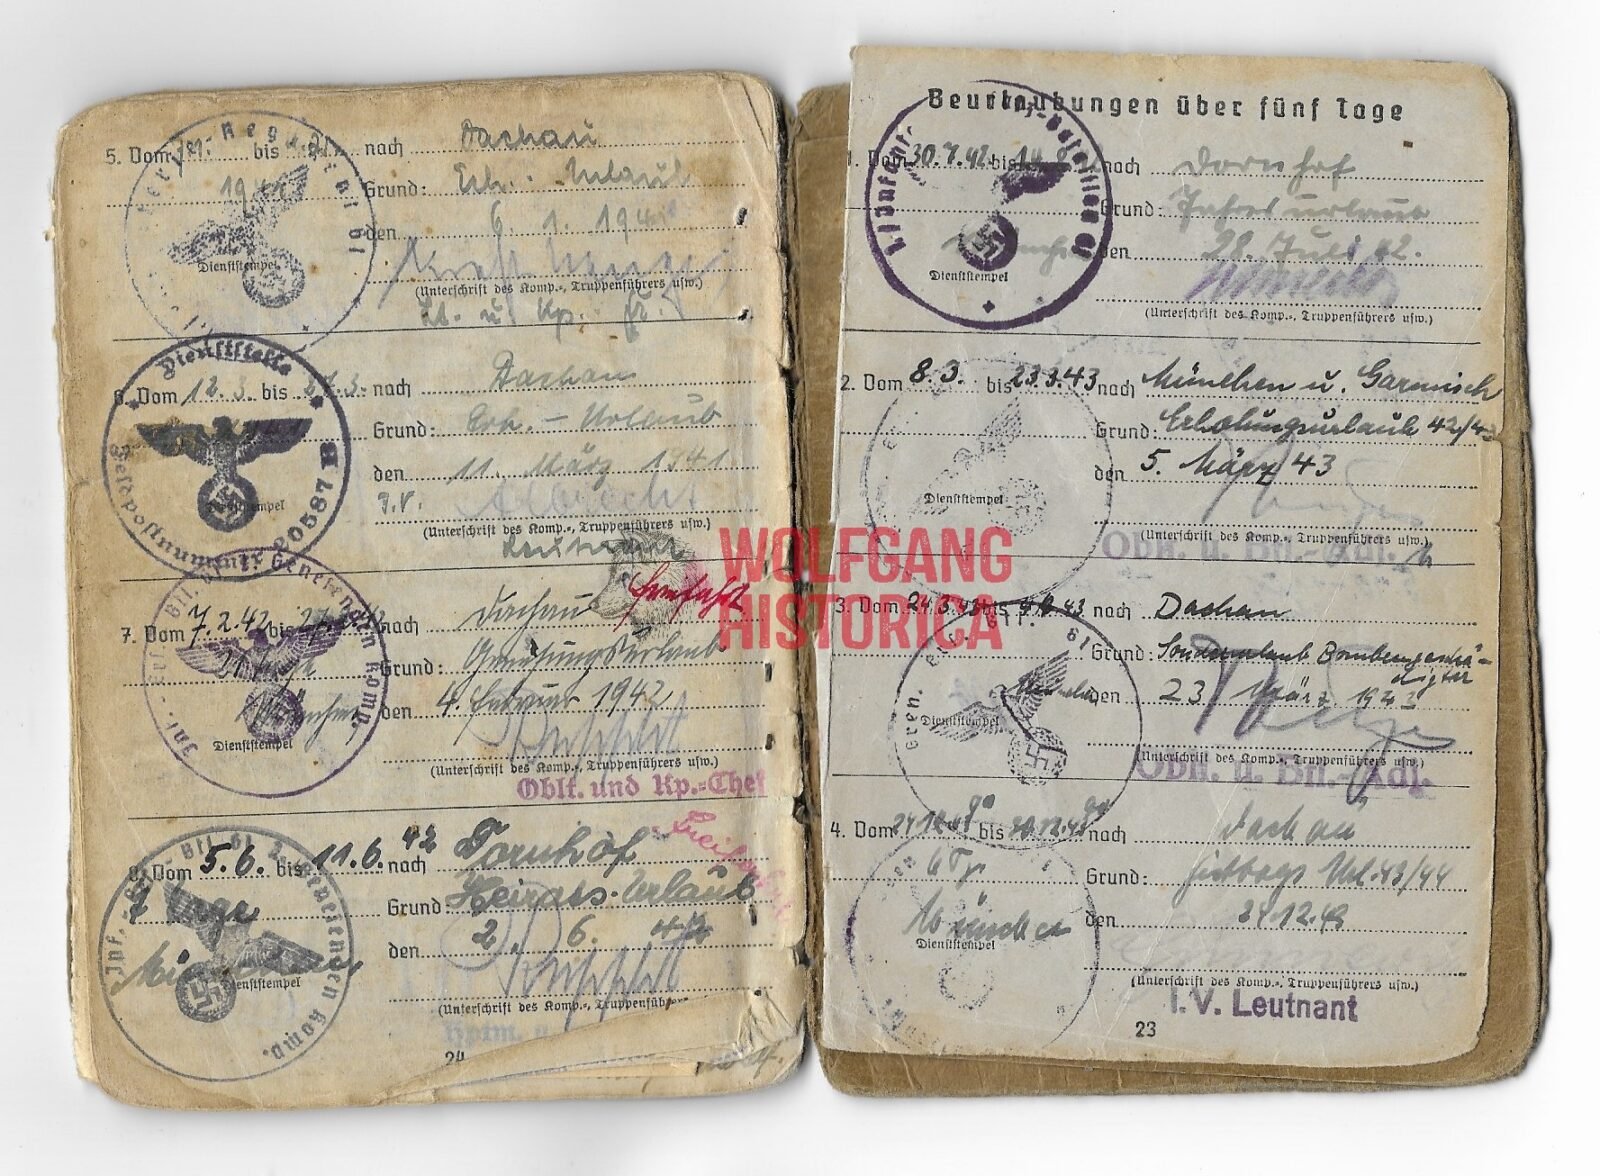 5. Vom bis nach Dachau
Grund: Erh. Urlaub
den 6. 1. 194
Dienststempel
(Unterschrift des Komp.-, Truppenführers usw.)
Lt. u. Kp. Fhr.
Dienststelle
Feldpostnummer 20587
Vom 12.3. bis 27.3. nach Dachau
Grund: Erh. - Urlaub
den 11. März 1941
I.V. Albrecht
(Unterschrift des Komp.-, Truppenführers usw.)
Leutnant
7. Vom 7.2.42 bis nach Dachau
Grund: Genesungsurlaub
München den 4. Februar 1942
Dienststempel
(Unterschrift des Komp.-, Truppenführers usw.)
Oblt. und Kp.-Chef
Inf.- Genesenden Komp.
8. Vom 5.6. bis 11.6. 42 nach Dornhof
7 Tage Grund: Heirats-Urlaub
München den 2. 6. 42
Dienststempel
(Unterschrift des Komp.-, Truppenführers
Hptm. u.
Inf.- Btl. 61 2. Genesenden Komp.
24
WOLFGANG
HISTORICA
Beurlaubungen über fünf Tage
1. Vom 30.7.42 bis nach Dornhof
Grund: Jahresurlaub
München den 28. Juli 42.
Dienststempel
(Unterschrift des Komp.-, Truppenführers usw.)
2. Vom 8.3. bis 23.3.43 nach München u. Garmisch
Grund: Erholungsurlaub 42/43
den 5. März 43
Dienststempel
(Unterschrift des Komp.-, Truppenführers usw.)
Oblt. u. Btl.-Adj.
3. Vom 24.3.43 bis 43 nach Dachau
Grund: Sonderurlaub Bombengeschä-
digter
München den 23 März 1943
Dienststempel
(Unterschrift des Komp.-, Truppenführers usw.)
Oblt. u. Btl.-Adj.
4. Vom 24.12.43 bis 30.12.43 nach Dachau
6 Tg. Grund: Url. 43/44
München den 24.12.43
Dienststempel
(Unterschrift des Komp.-, Truppenführers usw.)
I.V. Leutnant
23